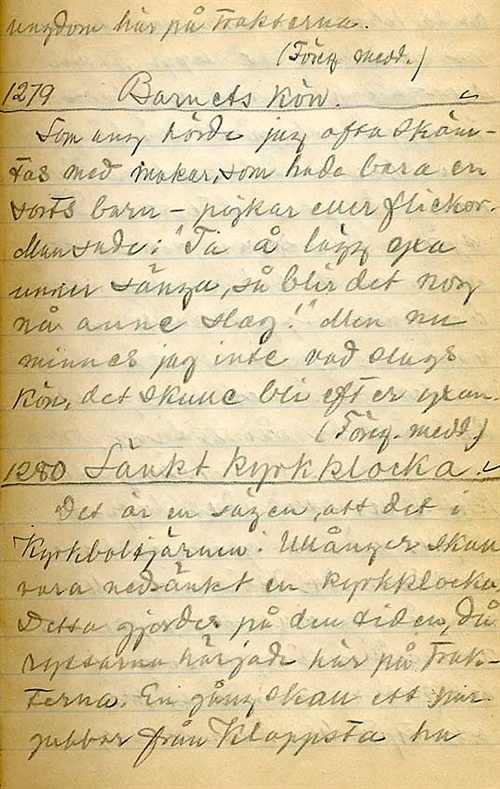 ungdom här på trakterna.
(Föreg. medd.)
1279 Barnets kön.
Som ung hörde jag ofta skäm-
tas med makar, som hade bara en
sorts barn – pojkar eller flickor.
Man sade: "Ta å lägg yxa
under sänga, så blir det nog
nå anne slag!" Men nu
minnes jag inte vad slags
kön, det skulle bli efter yxan.
(Föreg. medd.)
1280 Sänkt kyrkklocka.
Det är en sägen, att det i
Kyrkboltjärnen i Ullånger skall
vara nedsänkt en kyrkklocka.
Detta gjordes på den tiden, då
ryssarna härjade här på trak-
terna. En gång skall ett par
gubbar från Kloppsta ha